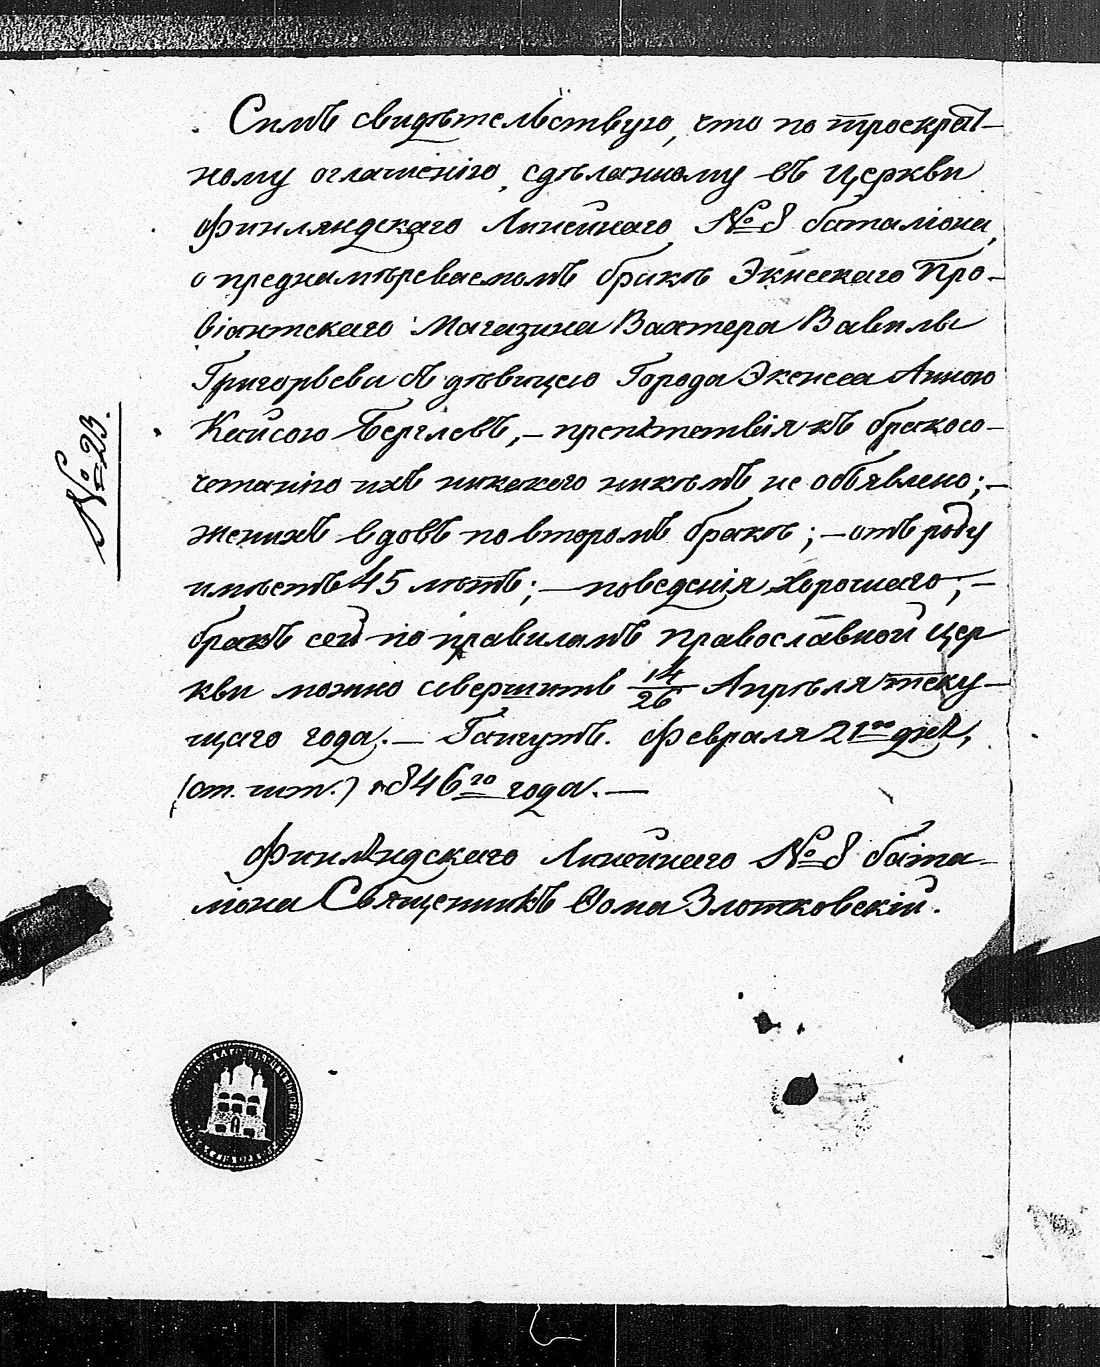 № 23.
Симъ свидѣтельствую, что по троекрат-
ному оглашенію, сдѣланному въ Церкви
Финляндскаго Линейнаго № 8 баталіона,
о преднамѣреваемомъ бракѣ Экнескаго Про-
віантскаго Магазина Вахтера Вавилы
Григорьева съ дѣвицею Города Экенеса Анною
Кайсою Берглевъ, – препятствія къ бракосо-
четанію ихъ никакого никѣмъ не объявлено; –
женихъ вдовъ по второмъ бракѣ; – отъ роду
имѣетъ 45 лѣтъ; – поведенія хорошаго; –
бракъ сей по правиламъ православной Цер
кви можно совершить 14/26 Апрѣля теку-
щаго года. – Гангутъ. Февраля 21го дня,
(ст. шт.) 1846го года. –
Финляндскаго Линейнаго № 8 бата-
ліона Священникъ Ѳома Злотковскій.